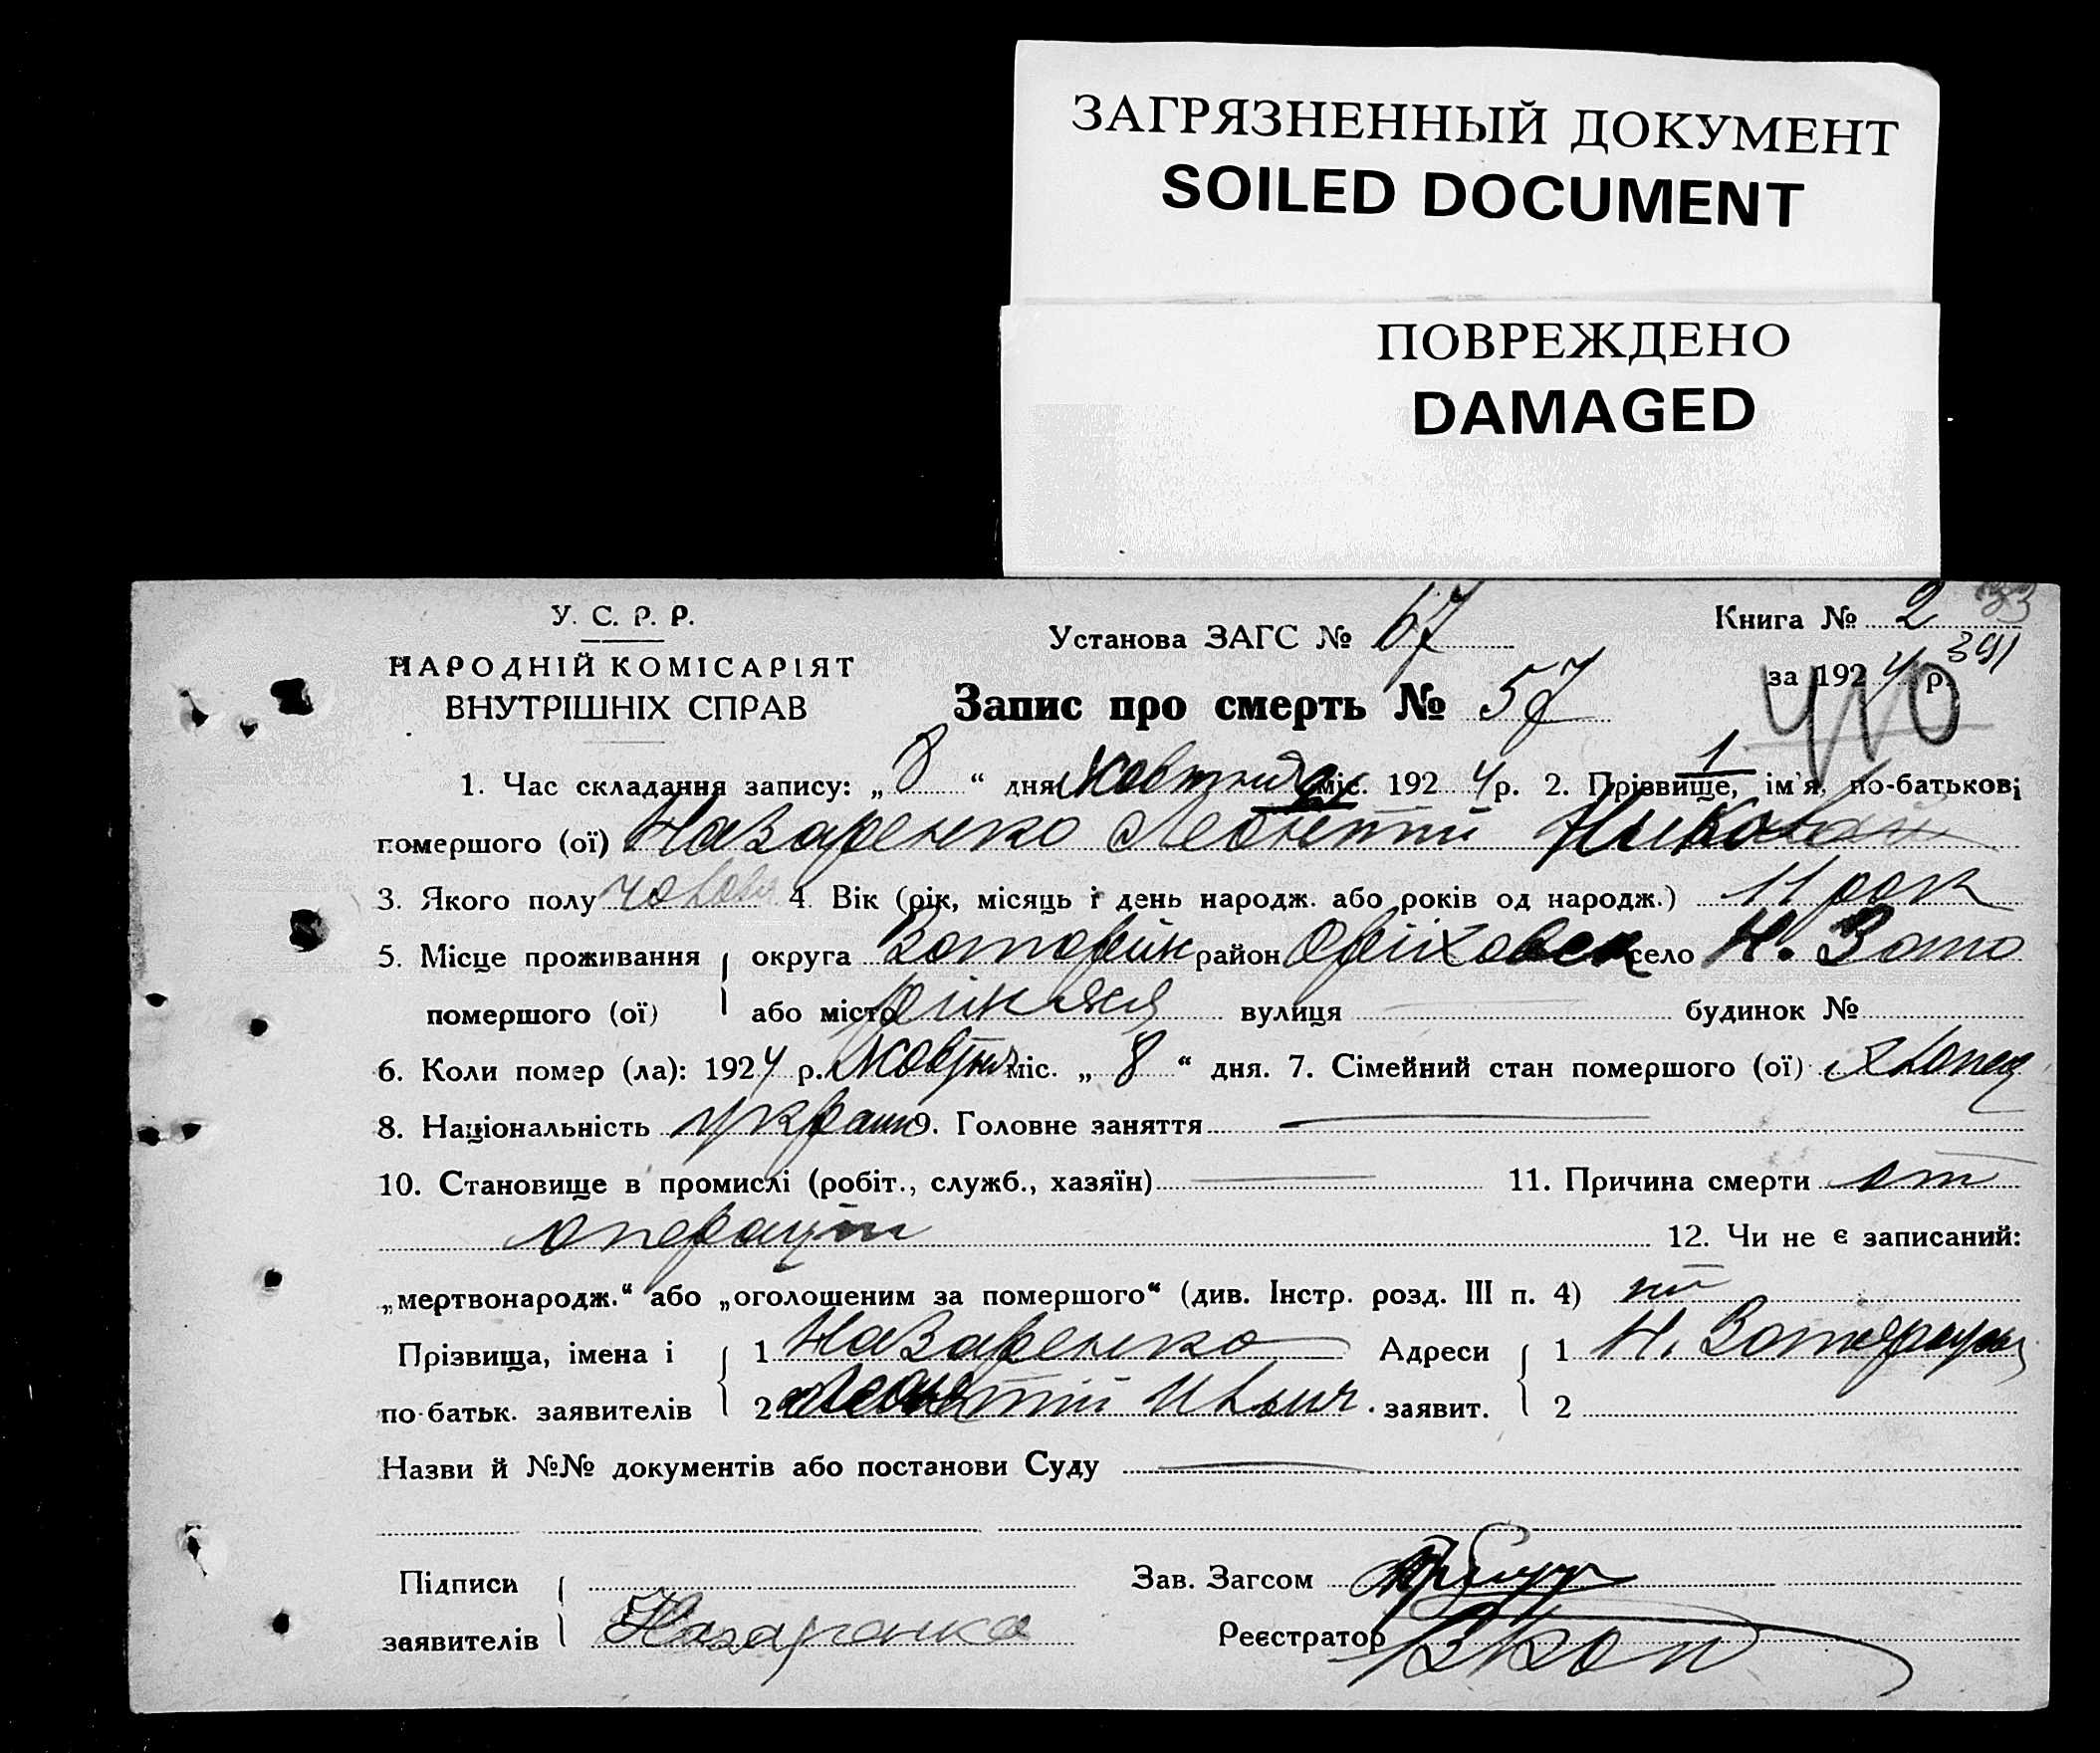 ЗАГРЯЗНЕННЫЙ ДОКУМЕНТ
SOILED DOCUMENT
ПОВРЕЖДЕНО
DAMAGED
У. С. Р. Р.
НАРОДНІЙ КОМІСАРІЯТ
ВНУТРІШНІХ СПРАВ
Установа ЗАГС № 67
Книга № 2 33
391
за 1924 р.
410
Запис про смерть № 57
1
1. Час складання запису: „ 8 “ дня Жовтня міс. 1924 р. 2. Прізвище, ім'я, по-батькові
помершого (ої) Назаренко Леонтій Николай
3. Якого полу 4. Вік (рік, місяць і день народж. або років од народж.) 11 рок
5. Місце проживання округа район село Н.
помершого (ої) або місто вулиця будинок №
6. Коли помер (ла): 1924 р. Жовтня міс. „ 8 “ дня. 7. Сімейний стан помершого (ої) хлопец
8. Національність україн 9. Головне заняття
10. Становище в промислі (робіт., служб., хазяїн) 11. Причина смерти от
операції
12. Чи не є записаний:
„мертвонародж.“ або „оголошеним за помершого“ (див. Інстр. розд. III п. 4) ні
Прізвища, імена і 1 Назаренко Адреси 1 Н.
по-батьк. заявителів 2 Леонтій Ильич заявит. 2
Назви й №№ документів або постанови Суду
Підписи Зав. Загсом
заявителів Назаренко Реєстратор